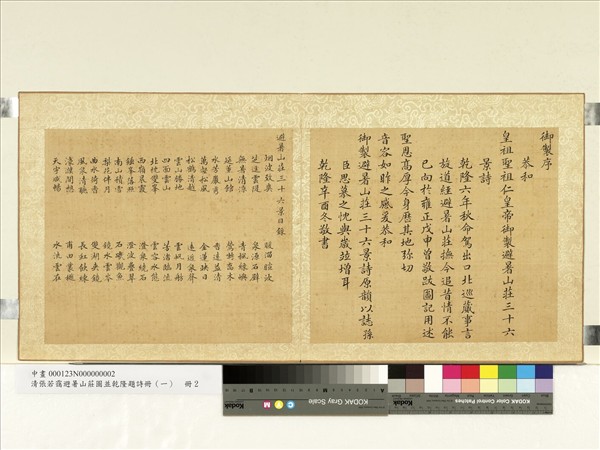 御製序
恭和
皇祖聖祖仁皇帝御製避暑山莊三十六
景詩
乾隆六年秋命駕出口北巡蕆事言
故道經避暑山莊撫今追昔情不能
已向於雍正戊申曾敬跋圖記用述
聖恩高厚今身歷其地弥切
音容如昨之感爰恭和
御製避暑山莊三十六景詩原韻以誌孫
臣思慕之忱與歲並增耳
乾隆辛酉冬敬書
避暑山莊三十六景目錄
烟波致爽 暖溜暄波
芝逕雲隄 泉源石壁
無暑清涼 青楓綠嶼
延薰山館 鶯囀喬木
水芳巖秀 香遠益清
萬壑松風 金蓮映日
松鶴清越 遠近泉聲
雲山勝地 雲帆月舫
四面雲山 芳渚臨流
北枕雙峯 雲容水態
西嶺晨霞 澄泉繞石
錘峯落照 澄波疊翠
南山積雪 石磯觀魚
梨花伴月 鏡水雲岑
曲水荷香 雙湖夾鏡
風泉清聽 長虹飲練
濠濮間想 甫田叢樾
天宇咸暢 水流雲在
中畫 000123N000000002
清張若靄避暑山莊圖並乾隆題詩冊（一） 冊 2
Kodak
C M
KODAK Gray Scale
Kodak
KODAK Color Control Patches